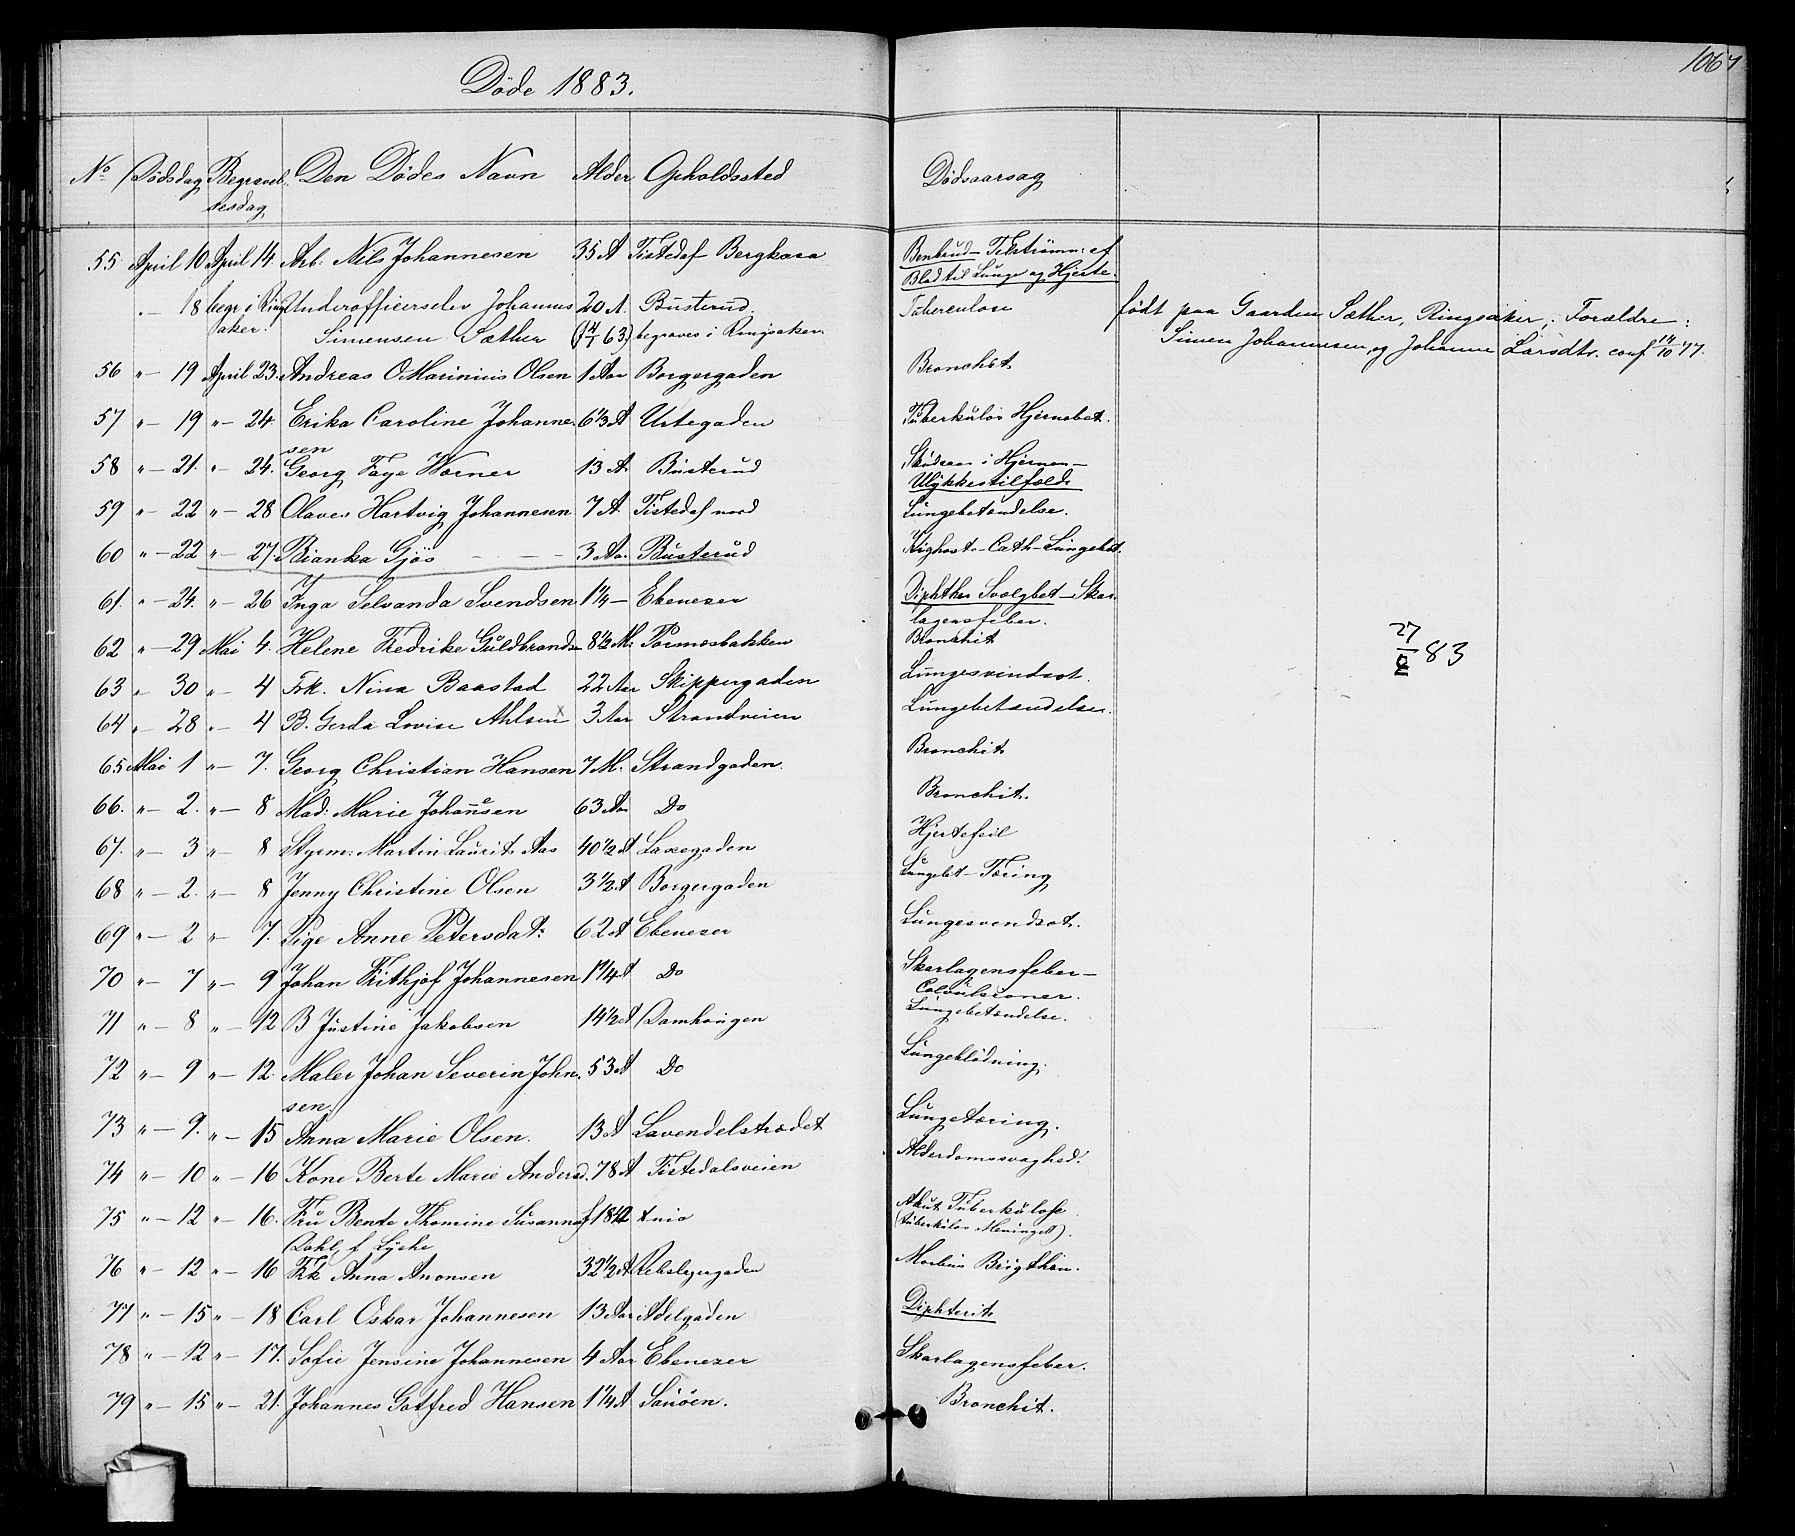 106
Döde 1883.
No Dödsdag Begravelsesdag Den Dödes Navn Alder Opholdssted Dödsaarsag
55 April 10 April 14. Arb. Nils Johannesen 35 A Tistedal Bergkasa Benbrud – Tilströmn: af
Blod til Lunge og Hjerte.
" – 18 begr i Ringsaker. Underofficerselev Johannes 20 A. Busterud. Tuberculose født paa Gaarden Sæther, Ringsaker; Forældre:
Simensen Sæther (14/1 63) begraves i Ringsaker. Simen Johannesen, og Johanne Larsdtr. conf 14/10 77.
56 " – 19 April 23. Andreas O Marinius Olsen 1 Aar Borgergaden Bronchit
57 " – 19 " – 24. Erika Caroline Johanne 6 1/3 A Urtegaden Tuberkulös Hjernebet.
sen
58 " – 21. " – 24. Georg Faye Worner 13 A. Busterud Skudsaar i Hjernen –
Ulykkestilfælde
59 " – 22 " – 28 Olaves Hartvig Johannesen 7 A Tistedal nord Lungebetændelse.
60 " – 22 " – 27. Bianka Gjös – – – 3 Aar. Busterud Kighoste – Cath – Lungebet.
61. " – 24. " – 26 Inga Selvanda Svendsen 1 1/4 – Ebenezer Diphther Svælgbet – Skar
lagensfeber.
62 " – 29 Mai 4. Helene Fredrike Guldbrands 8 1/2 M. Pormesbakken Bronchit 27/5 83
63 " 30 " – 4 Frk. Nina Baastad 22 Aar Skippergaden Lungesvindsot.
64 " – 28 " – 4 B. Gerda Lovise Ahlsen x 3 Aar Strandveien Lungebetændelse.
65 Mai 1 " – 7. Georg Christian Hansen 7 M. Strandgaden. Bronchit
66. " – 2. " – 8 Mad: Marie Johannsen 63 Aar Do Bronchit.
67. " – 3 " – 8 Styrm: Martin Laurits Aas 40 1/2 A Laxegaden Hjertefeil
68 " – 2. " – 8 Jenny Christine Olsen 3 1/2 A Borgergaden Lungebet – Tæring
69 " – 2 " – 7. Pige Anne Petersdat: 62 A Ebenezer Lungesvendsot.
70 " – 7 " – 9 Johan Frithjof Johannesen 1 1/4 A Do Skarlagensfeber –
Colvulsioner.
71 " – 8 " – 12 B Justine Jakobsen 14 1/2 A Damhaugen Lungebetændelse.
72 " – 9 " – 12. Maler Johan Severin John. 53 A Do Lungeblödning.
sen.
73 " – 9. " – 15 Anna Marie Olsen. 13 A Lavendelstrædet Lungetæring.
74 " – 10 " – 16 Kone Berte Marie Andersd. 78 A Tistedalsveien Alderdomssvaghed.
75 " – 12 " – 16. Fru Bente Thomine Susanna f 1842 Akut Tuberkulose
Dahl f. Lyche (tuberkulös Meninget).
76 " – 12 " – 16 Frk Anna Anonsen 32 1/2 A Rebslagergaden Morbus Brigthii.
77 " – 15 " – 18 Carl Oskar Johannesen 13 Aar Adelgaden Diphterit
78 " – 12 " – 17. Sofie Jensine Johannesen 4 Aar Ebenezer Skarlagensfeber.
79 " – 15 " – 21. Johannes Gotfred Hansen 1 1/4 A Sauöen. Bronchit.